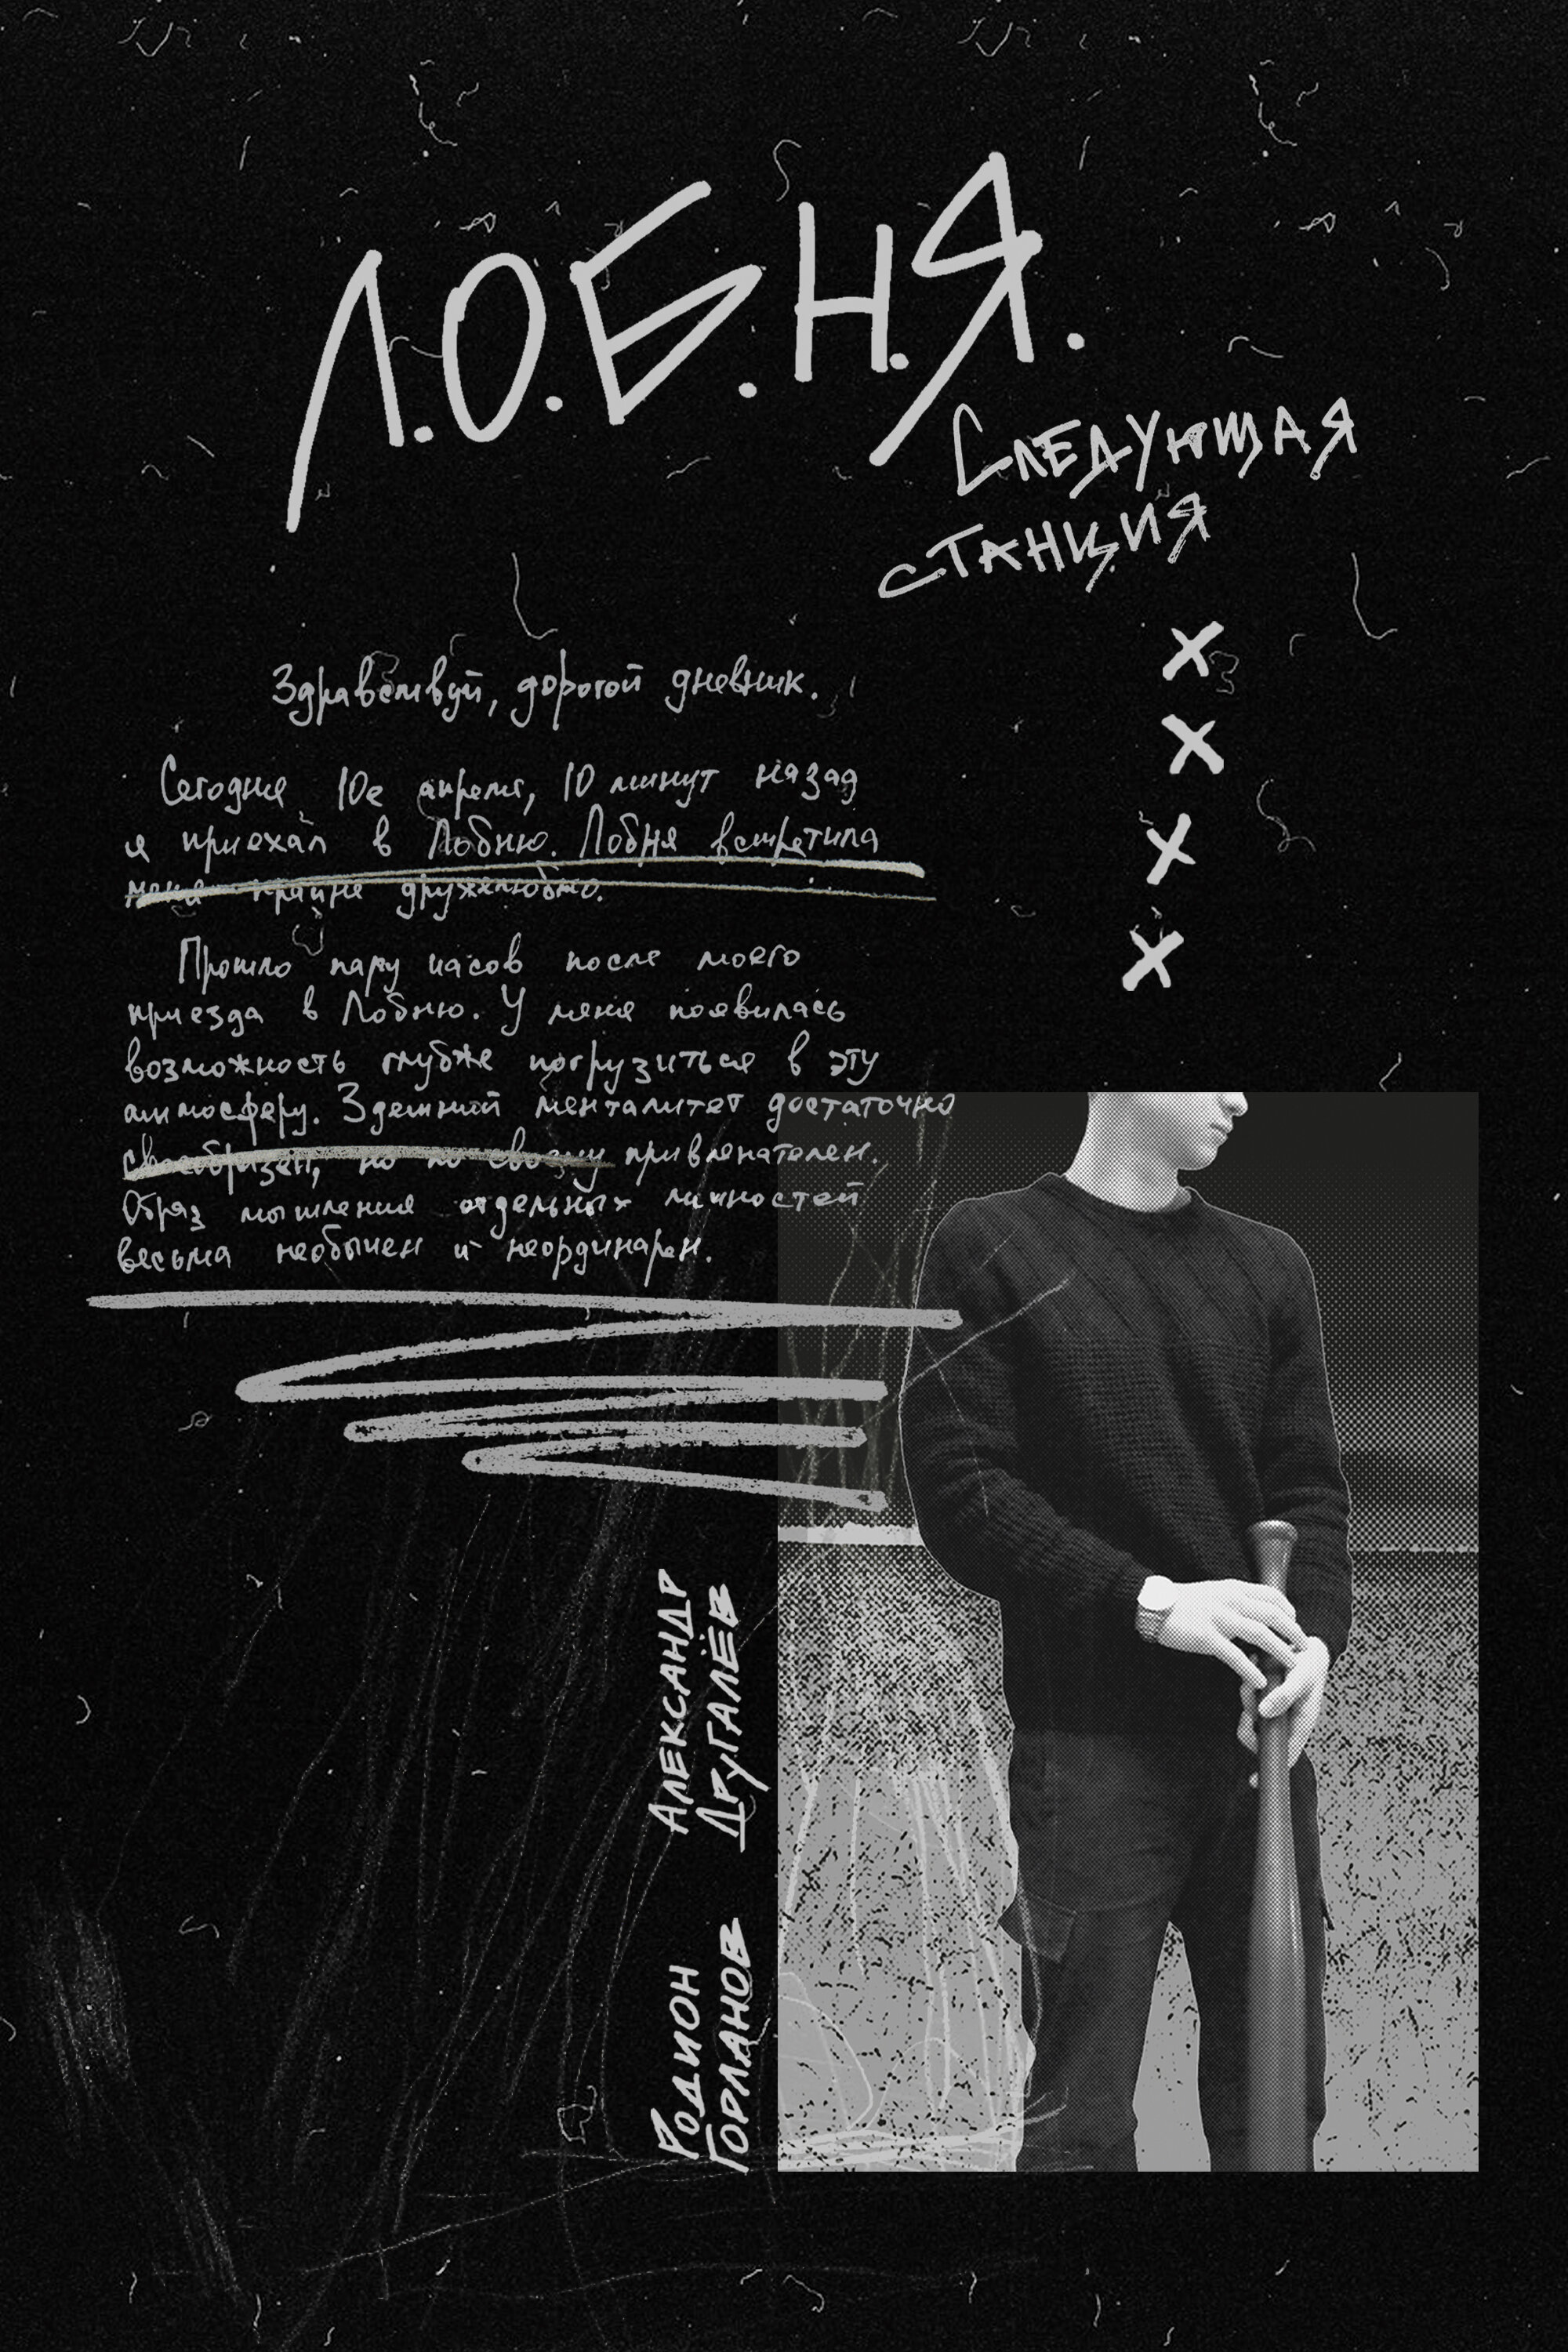 Л.О.Б.Н.Я.
Следующая
станция
Здравствуй, дорогой дневник.
Сегодня 10е апреля, 10 минут назад
я приехал в Лобню. Лобня встретила
меня крайне дружелюбно.
Прошло пару часов после моего
приезда в Лобню. У меня появилась
возможность глубже погрузиться в эту
атмосферу. Здешний менталитет достаточно
своеобразен, но по своему привлекателен.
Образ мышления отдельных личностей
весьма необычен и неординарен.
Александр
Другалёв
Родион
Горланов